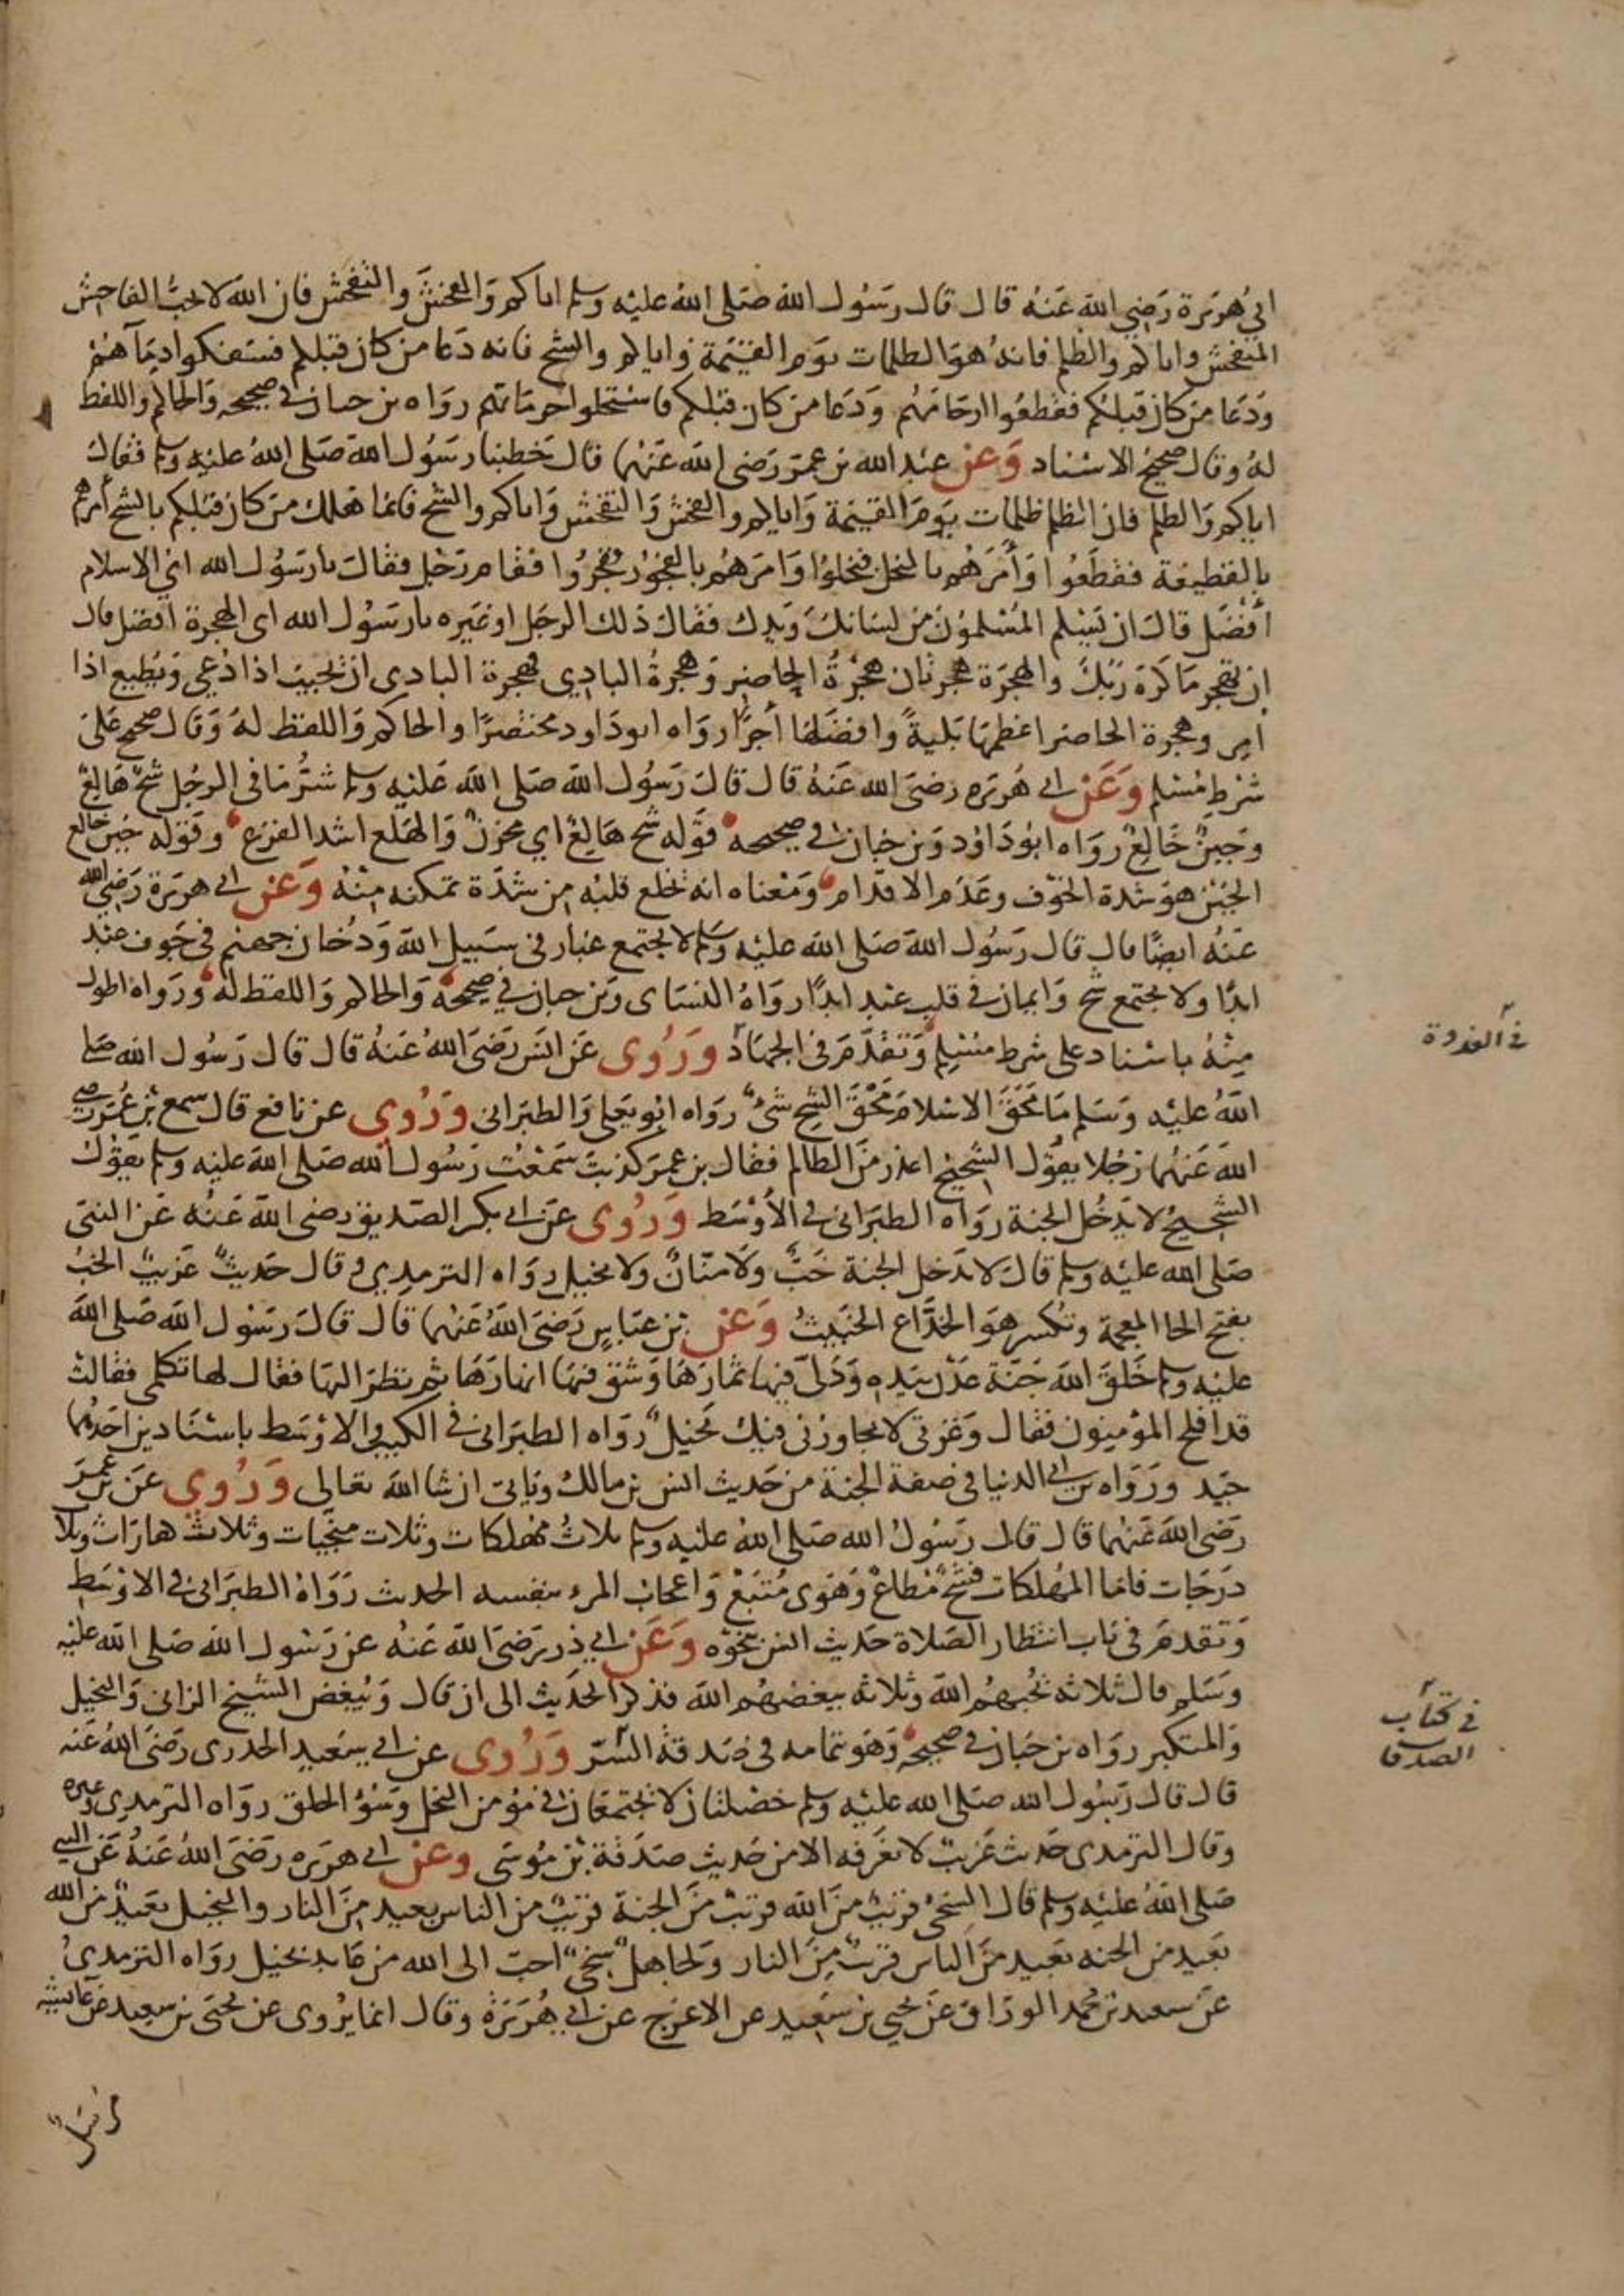 ابي هريرة رضي الله عنه قال قال رسول الله صلى الله عليه وسلم اياكم والفحش والتفحش فان الله لا يحب الفاحش
المتفحش واياكم والظلم فانه هو الظلمات يوم القيمة واياكم والشح فانه دعا من كان قبلكم فسفكوا دماهم
ودعا من كان قبلكم فقطعوا ارحامهم ودعا من كان قبلكم فاستحلوا حرماتهم رواه بن حبان في صحيحه والحاكم واللفظ
له وقال صحيح الاسناد وعن عبد الله بن عمر رضي الله عنهما قال خطبنا رسول الله صلى الله عليه وسلم فقال
اياكم والظلم فان الظلم ظلمات يوم القيمة واياكم والفحش والتفحش واياكم والشح فانما هلك من كان قبلكم بالشح أمرهم
بالقطيعة فقطعوا وأمرهم بالبخل فبخلوا وامرهم بالفجور ففجروا فقام رجل فقال يا رسول الله اي الاسلام
أفضل قال ان يسلم المسلمون من لسانك ويدك فقال ذلك الرجل او غيره يا رسول الله اي الهجرة افضل قال
ان تهجر ما كره ربك والهجرة هجرتان هجرة الحاضر وهجرة البادي فهجرة البادي ان يجيب اذا دعي ويطيع اذا
امر وهجرة الحاضر اعظمها بلية وافضلها أجرا رواه ابو داود مختصرا والحاكم واللفظ له وقال صحيح على
شرط مسلم وعن ابي هريرة رضي الله عنه قال قال رسول الله صلى الله عليه وسلم شر ما في الرجل شح هالع
وجبن خالع رواه ابو داود وبن حبان في صحيحه قوله شح هالع اي محزن والهلع اشد الفزع وقوله جبن خالع
الجبن هو شدة الخوف وعدم الاقدام ومعناه انه يخلع قلبه من شدة تمكنه منه وعن ابي هريرة رضي الله
عنه ايضا قال قال رسول الله صلى الله عليه وسلم لا يجتمع غبار في سبيل الله ودخان جهنم في جوف عبد
ابدا ولا يجتمع شح وايمان في قلب عبد ابدا رواه النسائي وبن حبان في صحيحه والحاكم واللفظ له ورواه اطول
منه باسناد على شرط مسلم وتقدم في الجهاد وروي عن انس رضي الله عنه قال قال رسول الله صلى
الله عليه وسلم ما محق الاسلام محق الشح شئ رواه ابو يعلى والطبراني وروي عن نافع قال سمع بن عمر رضي
الله عنهما رجلا يقول الشحيح اعذر من الظالم فقال بن عمر كذبت سمعت رسول الله صلى الله عليه وسلم يقول
الشحيح لا يدخل الجنة رواه الطبراني في الأوسط وروي عن ابي بكر الصديق رضي الله عنه عن النبي
صلى الله عليه وسلم قال لا يدخل الجنة خب ولا منان ولا بخيل رواه الترمذي وقال حديث غريب الخب
بفتح الخا المعجمة وتكسر هو الخداع الخبيث وعن بن عباس رضي الله عنهما قال قال رسول الله صلى الله
عليه وسلم خلق الله جنة عدن بيده ودلى فيها ثمارها وشق فيها انهارها ثم نظر اليها فقال لها تكلمي فقالت
قد افلح المؤمنون فقال وعزتي لا يجاورني فيك بخيل رواه الطبراني في الكبير والاوسط باسنادين احدهما
جيد ورواه بن ابي الدنيا في صفة الجنة من حديث انس بن مالك وياتي ان شا الله تعالى وروي عن بن عمر
رضي الله عنهما قال قال رسول الله صلى الله عليه وسلم ثلاث مهلكات وثلاث منجيات وثلاث كفارات وثلاث
درجات فاما المهلكات فشح مطاع وهوى متبع واعجاب المرء بنفسه الحديث رواه الطبراني في الاوسط
وتقدم في باب انتظار الصلاة حديث انس بنحوه وعن ابي ذر رضي الله عنه عن رسول الله صلى الله عليه
وسلم قال ثلاثة يحبهم الله وثلاثة يبغضهم الله فذكر الحديث الى ان قال ويبغض الشيخ الزاني والبخيل
والمتكبر رواه بن حبان في صحيحه وهو بتمامه في صدقة السر وروي عن ابي سعيد الخدري رضي الله عنه
قال قال رسول الله صلى الله عليه وسلم خصلتان لا يجتمعان في مؤمن البخل وسؤ الخلق رواه الترمذي وغيره
وقال الترمذي حديث غريب لا نعرفه الا من حديث صدقة بن موسى وعن ابي هريرة رضي الله عنه عن النبي
صلى الله عليه وسلم قال السخي قريب من الله قريب من الجنة قريب من الناس بعيد من النار والبخيل بعيد من الله
بعيد من الجنه بعيد من الناس قريب من النار ولجاهل سخي احب الى الله من عابد بخيل رواه الترمذي
عن سعيد بن محمد الوراق عن يحيى بن سعيد عن الاعرج عن ابي هريرة وقال انما يروى عن يحيى بن سعيد عن عائشة
في كتاب
الصدقات